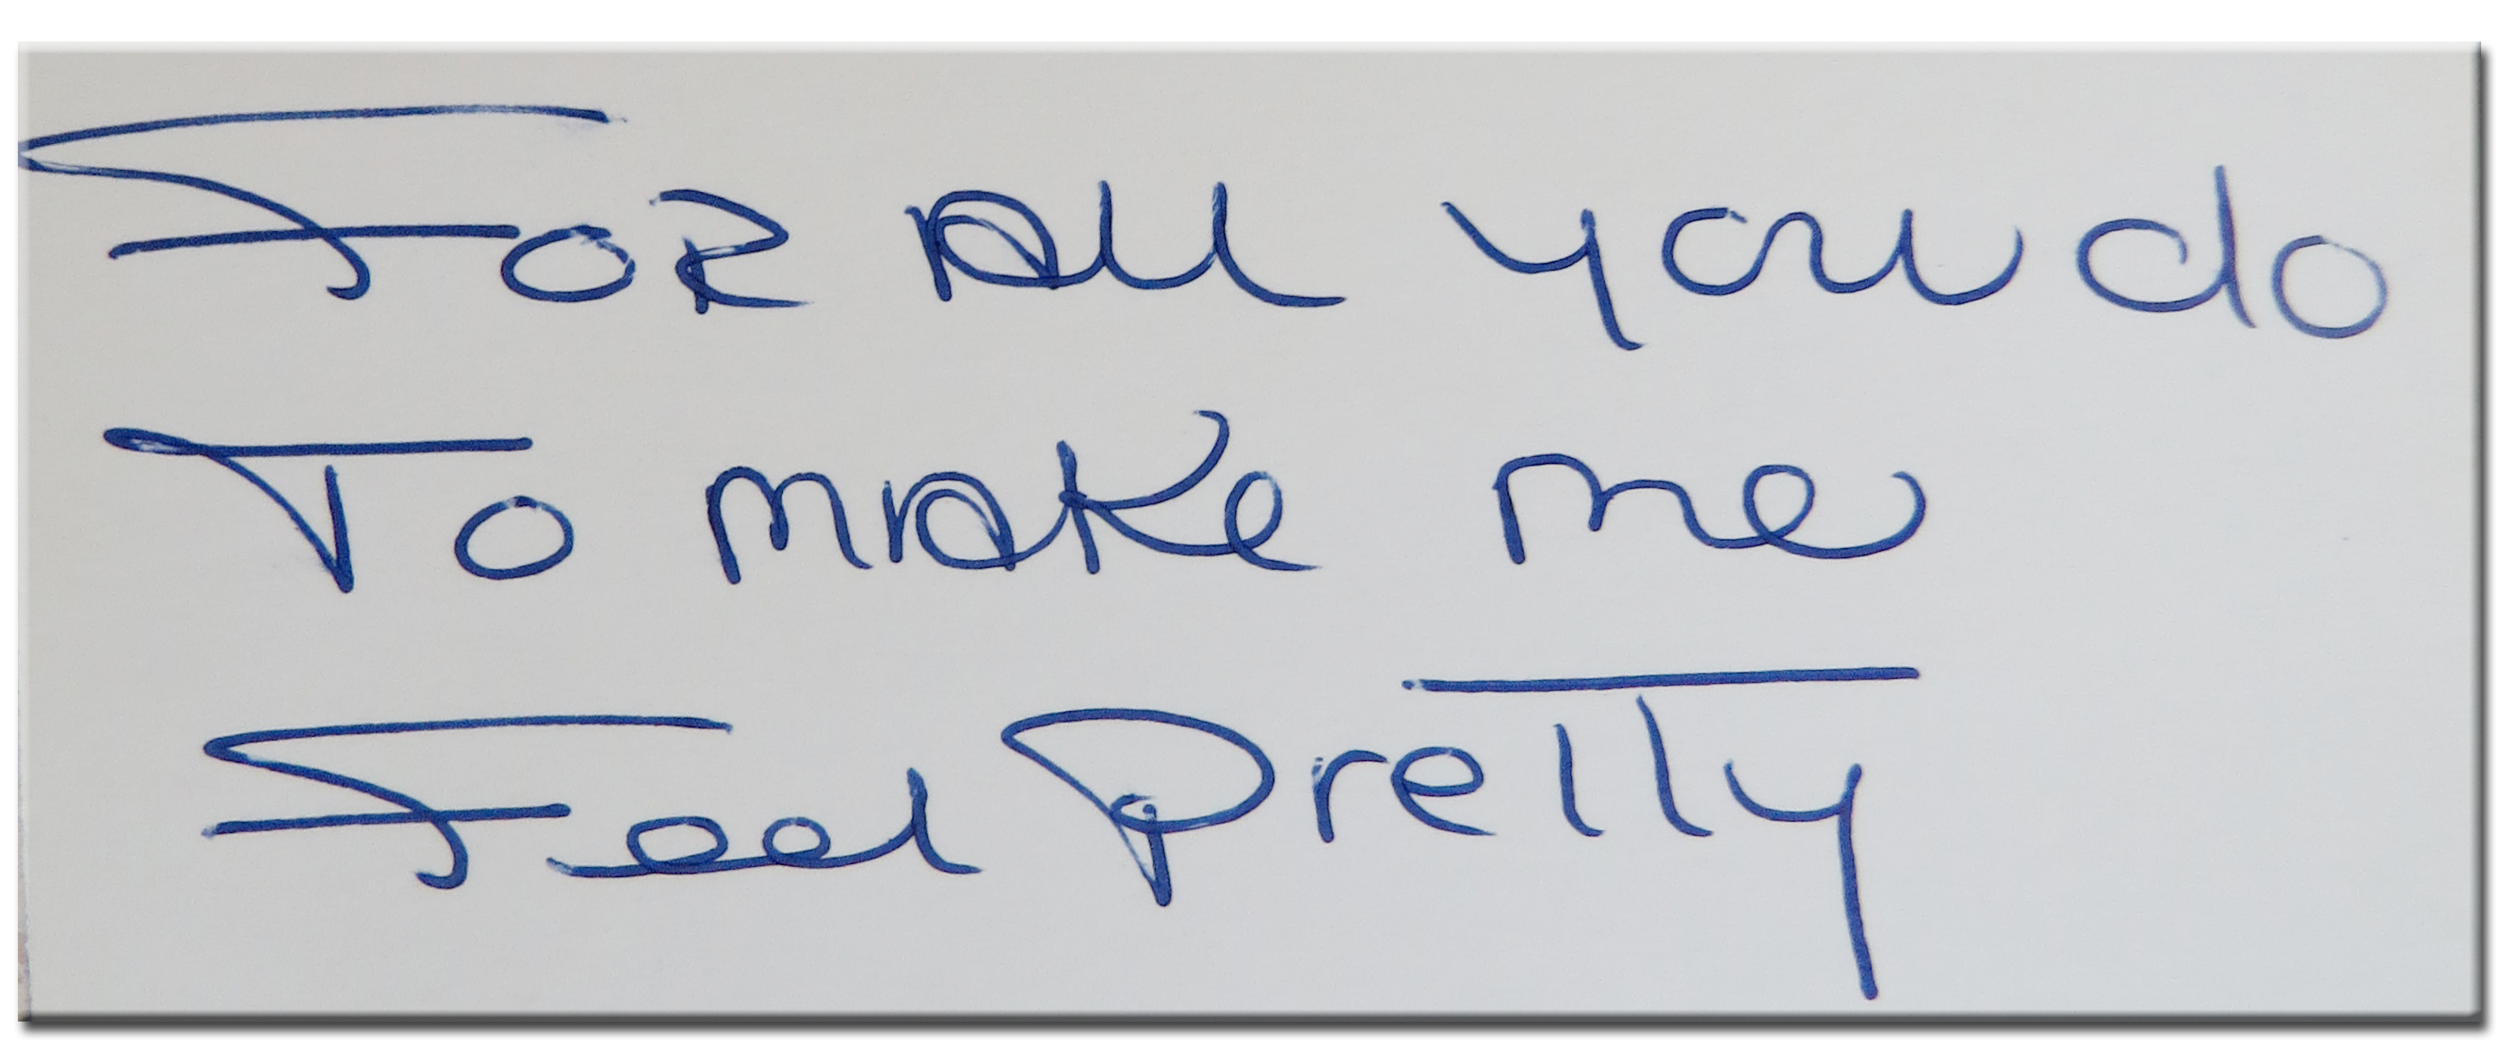 For all you do
To make me
Feel Pretty